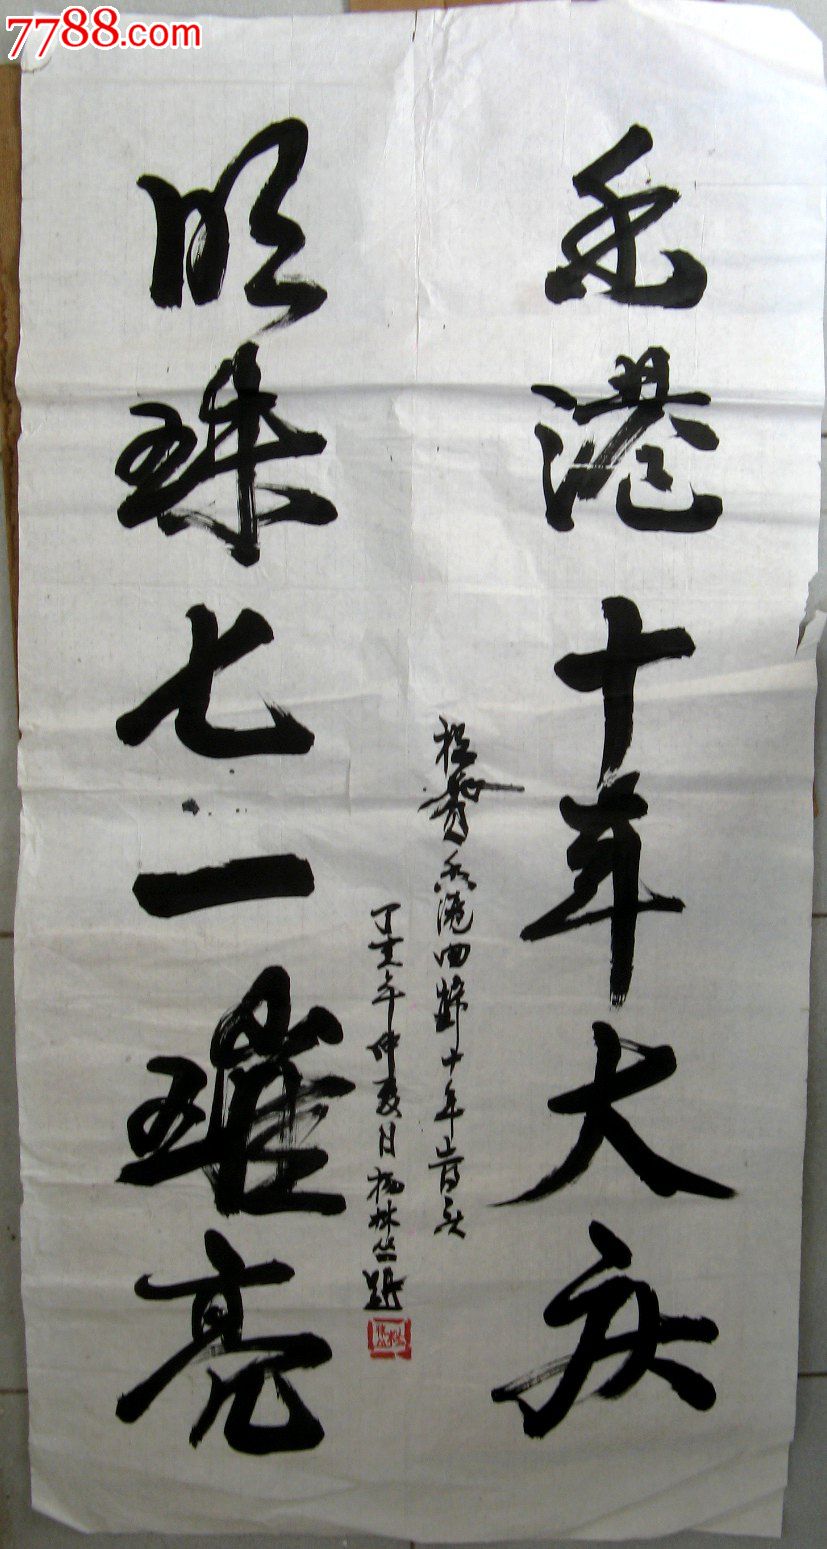 7788.com
香港十年大庆
明珠七一璀亮
祝贺香港回归十年
丁亥年仲夏月杨林丛题